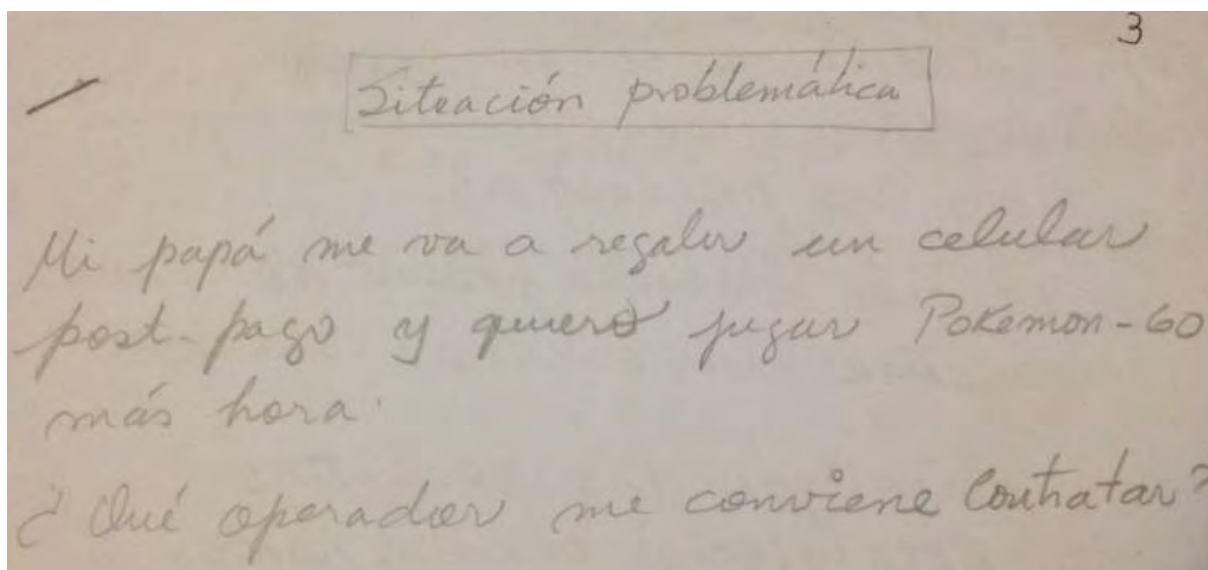 3
Situación problemática
Mi papá me va a regalar un celular
post-pago y quiero jugar Pokemon-GO
más hora.
¿Qué operador me conviene Contratar?